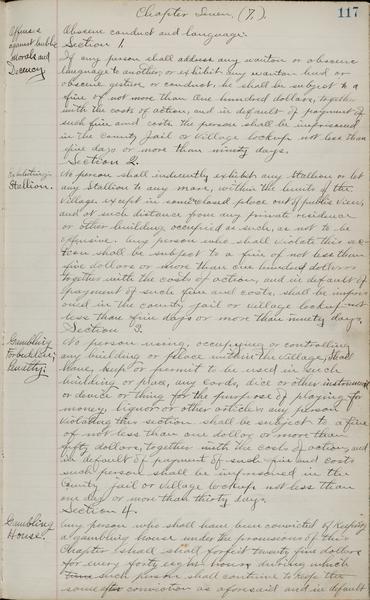 Chapter Seven, (7.)
117
Offenses against public Morals and Decency.
Obscene conduct and language.
Section 1.
If any person shall address any wanton or obscene
language to another, or exhibit any wanton lewd or
obscene gesture or conduct, he shall be subject to a
fine of not more than One hundred dollars, together
with the costs of action, and in default of payment of
such fine and costs the person shall be imprisoned
in the County Jail or Village lockup not less than
five days or more than ninety days.
Section 2.
Exhibiting Stallion.
No person shall indecently exhibit any Stallion or let
any Stallion to any mare, within the limits of the
Village except in some closed place out of public view,
and at such distance from any private residence
or other building occupied as such, as not to be
offensive. Any person who shall violate this sec-
tion shall be subject to a fine of not less than
five dollars or more than one hundred dollars
together with the costs of action, and in default of
payment of such fine and costs, shall be impris-
oned in the county jail or village lockup not
less than five days or more than ninety days.
Section 3.
Gambling forbidden; Penalty;
No person using, occupying or controlling
any building or place within the Village, shall
have, keep or permit to be used in such
building or place, any cards, dice or other instrument
or device or thing for the purpose of playing for
money, liquor or other articles; any person
violating this section shall be subject to a fine
of not less than one dollar or more than
fifty dollars, together with the costs of action, and
in default of payment of such fine and costs
such person shall be imprisoned in the
County jail or Village lockup not less than
one day or more than thirty days.
Section 4.
Gambling House.
Any person who shall have been convicted of keeping
a gambling house under the provisions of this
Chapter shall forfeit twenty five dollars
for every forty eight hours during which
time such person shall continue to keep the
same after conviction as aforesaid and in default